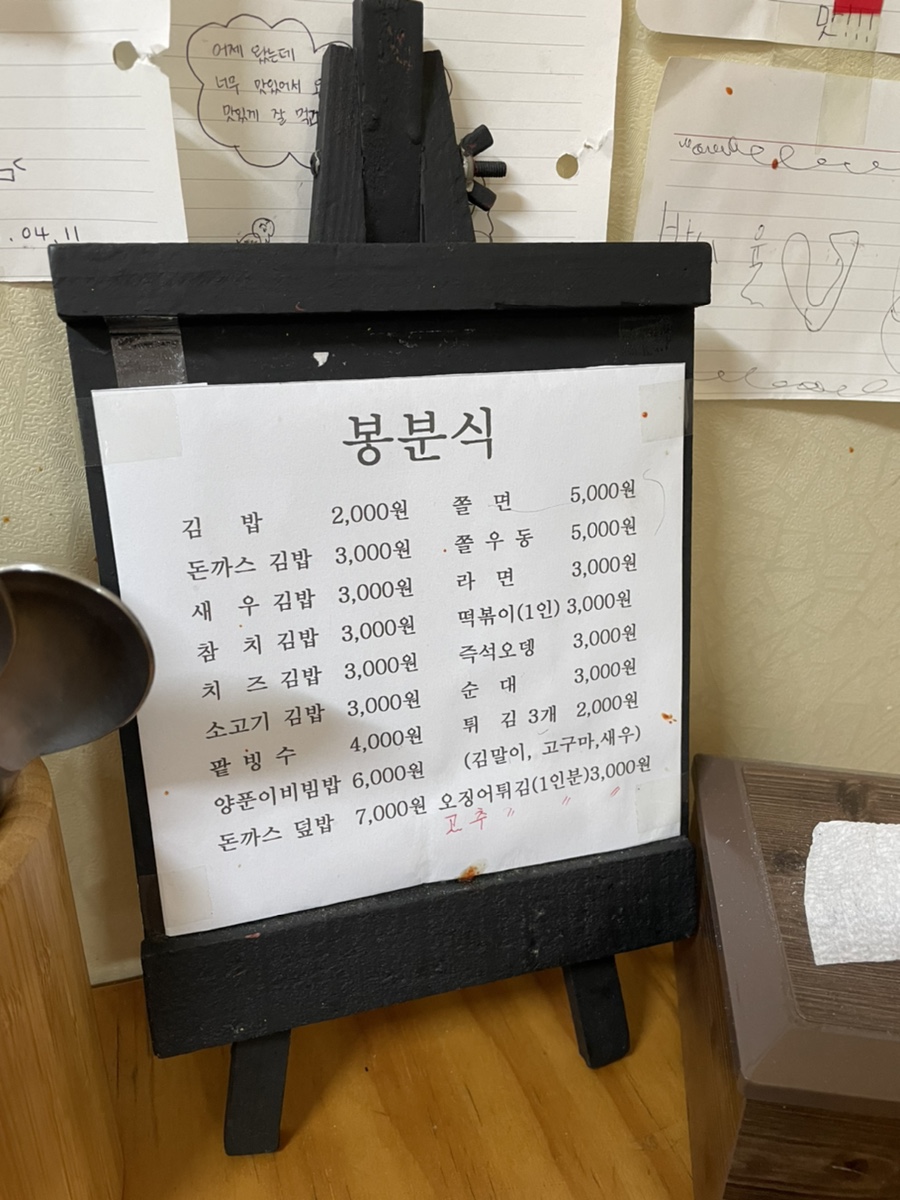 맛!!!
어제 왔는데
너무 맛있어서
맛있게 잘
.04.11
봉분식
김 밥 2,000원
돈까스 김밥 3,000원
새 우 김밥 3,000원
참 치 김밥 3,000원
치 즈 김밥 3,000원
소고기 김밥 3,000원
팥 빙 수 4,000원
양푼이비빔밥 6,000원
돈까스 덮밥 7,000원
쫄 면 5,000원
쫄 우 동 5,000원
라 면 3,000원
떡볶이(1인) 3,000원
즉석오뎅 3,000원
순 대 3,000원
튀 김 3개 2,000원
(김말이, 고구마,새우)
오징어튀김(1인분)3,000원
고추 〃 〃 〃